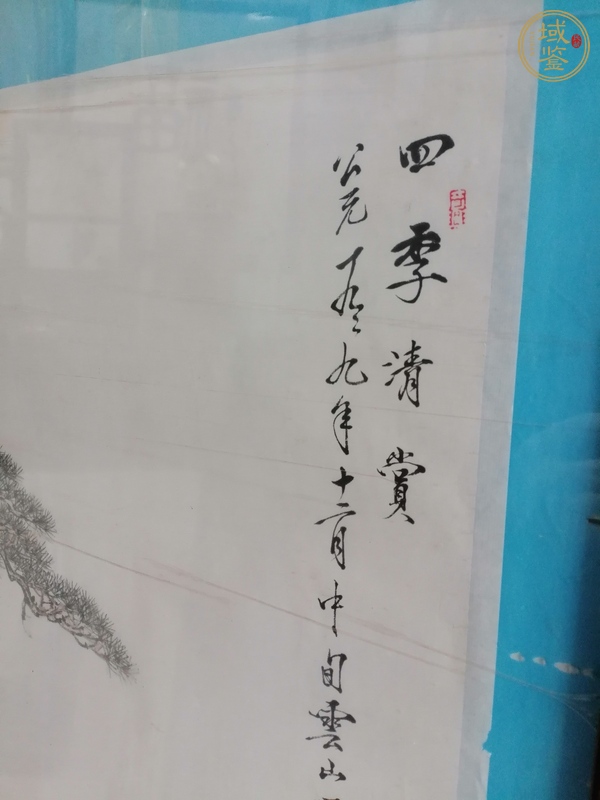 四季清賞
公元一九〻九年十二月中旬雲山
域鉴